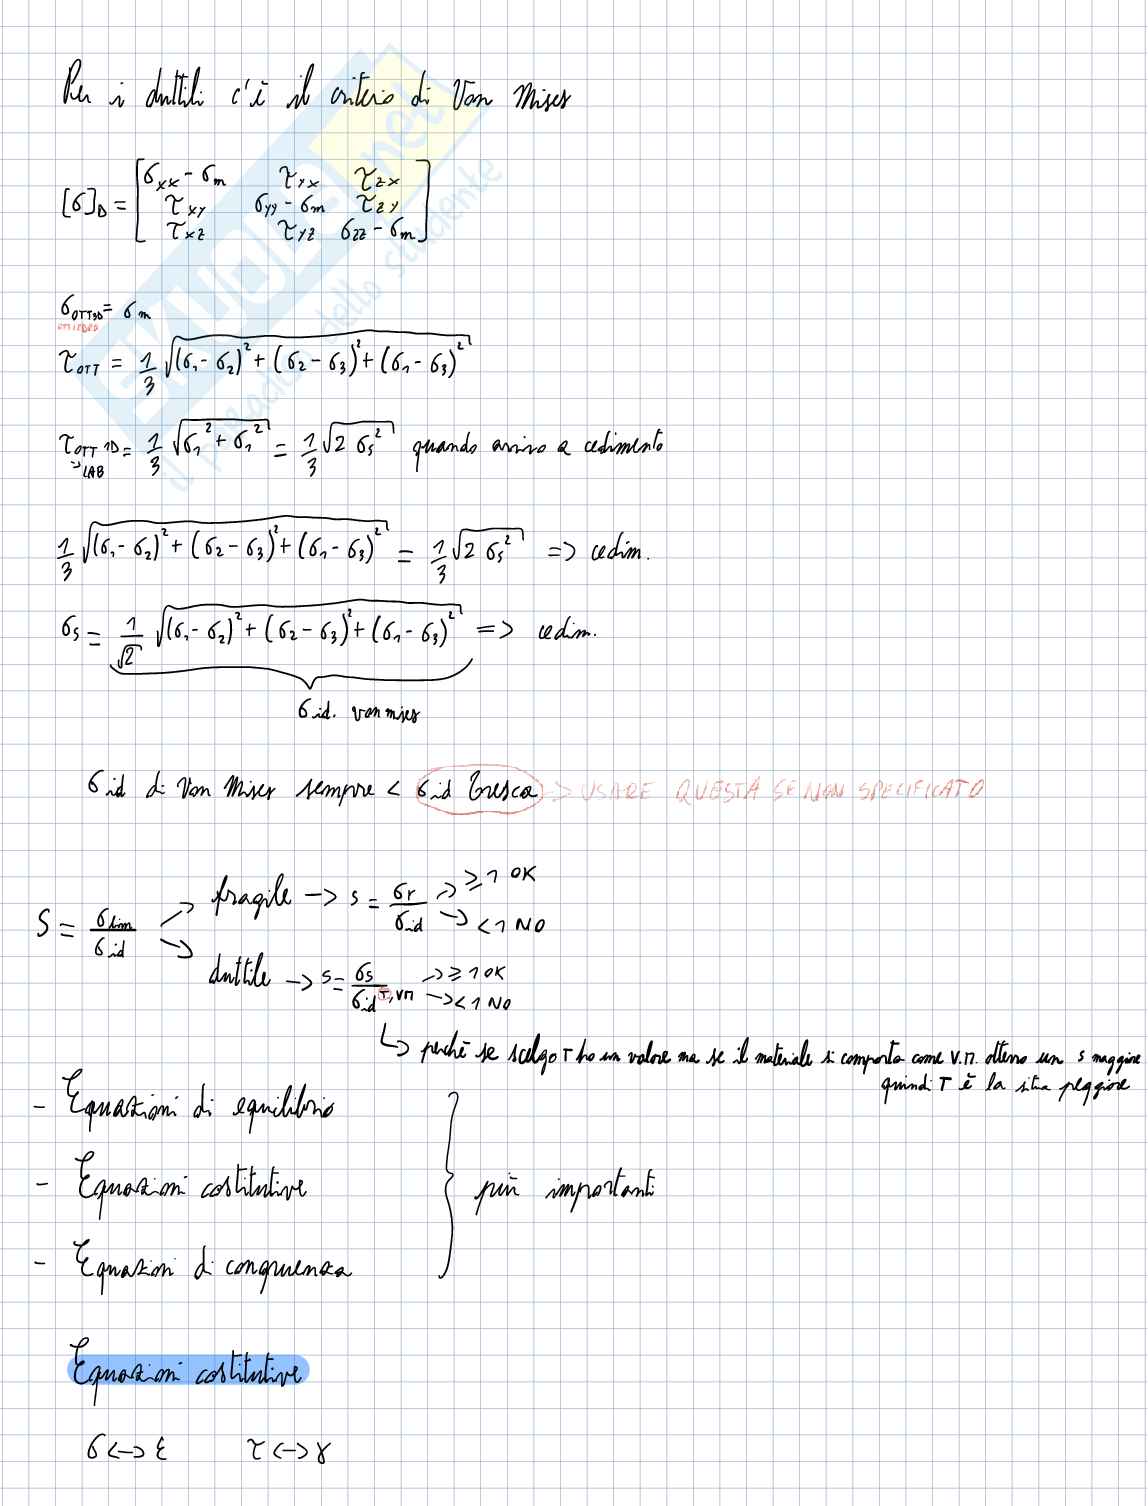 Per i duttili c'è il criterio di Von Mises
[σ]D = [ σxx - σm τyx τzx
τxy σyy - σm τzy
τxz τyz σzz - σm ]
σOTT3D = σm
OTTAEDRO
τOTT = 1/3 √((σ1 - σ2)² + (σ2 - σ3)² + (σ1 - σ3)²)
τOTT 1D = 1/3 √(σ1² + σ1²) = 1/3 √(2 σs²) quando arrivo a cedimento
-> LAB
1/3 √((σ1 - σ2)² + (σ2 - σ3)² + (σ1 - σ3)²) = 1/3 √(2 σs²) => cedim.
σs = 1/√2 √((σ1 - σ2)² + (σ2 - σ3)² + (σ1 - σ3)²) => cedim.
σid. von mises
σid di Von Mises sempre < σid Tresca -> USARE QUESTA SE NON SPECIFICATO
S = σlim/σid -> fragile -> s = σr/σid -> ≥ 1 OK
-> < 1 NO
-> duttile -> s = σs/σid T, VM -> ≥ 1 OK
-> < 1 NO
↳ perché se scelgo T ho un valore ma se il materiale si comporta come V.M. ottengo un s maggiore
quindi T è la situa peggiore
- Equazioni di equilibrio
- Equazioni costitutive } più importanti
- Equazioni di congruenza
Equazioni costitutive
σ <-> ε τ <-> γ
SKUOLA.net
il paradiso dello studente